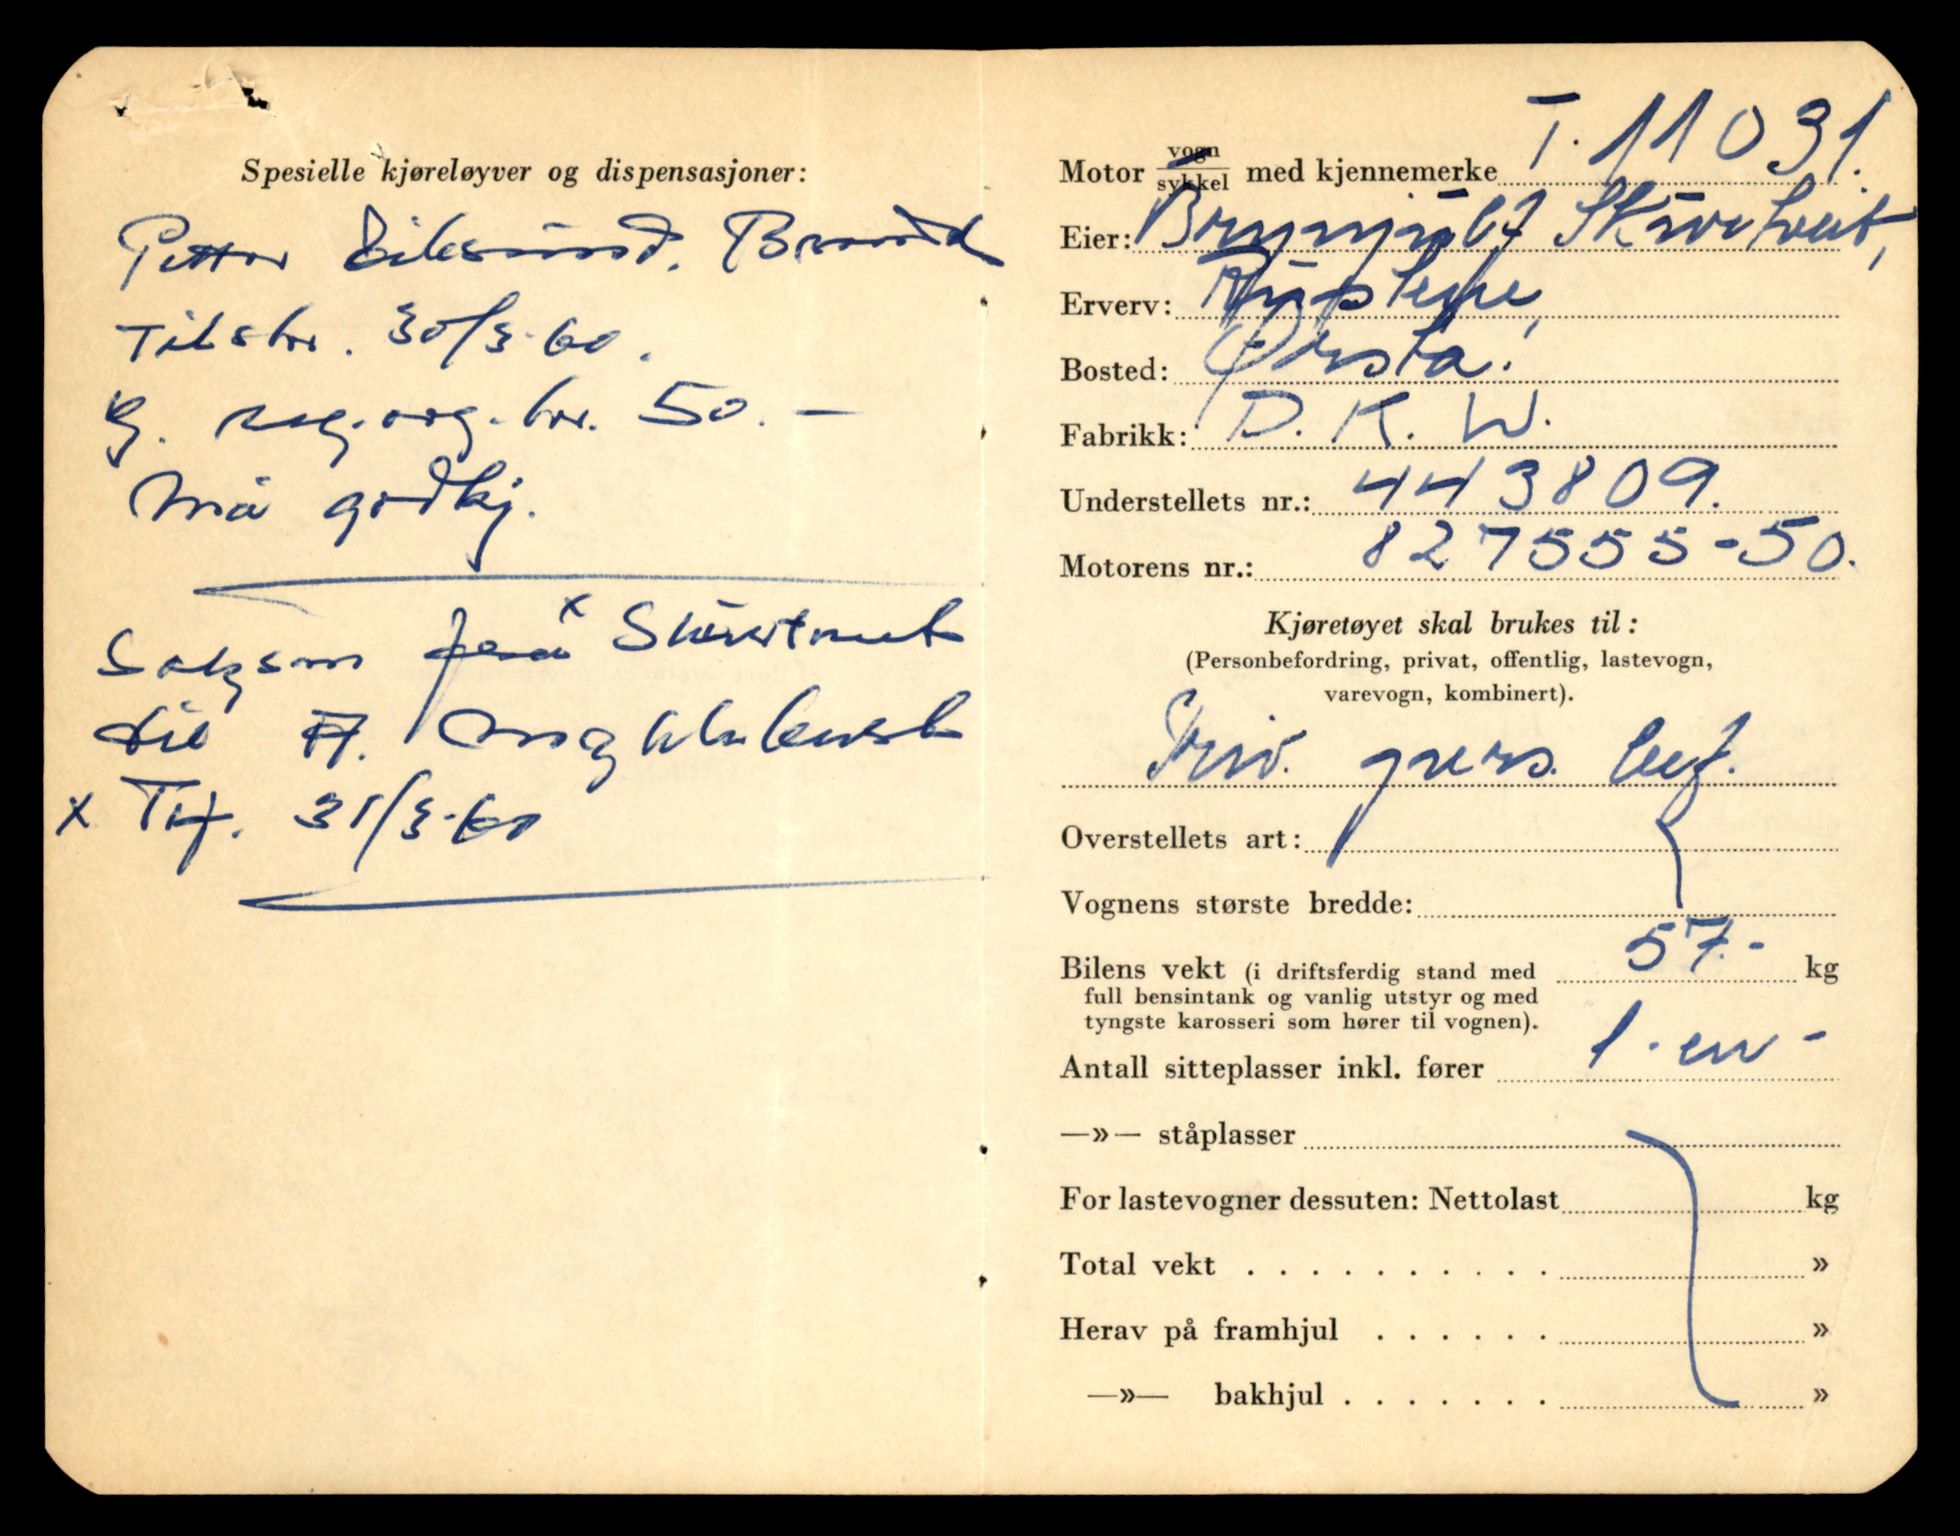 Spesielle kjøreløyver og dispensasjoner:
Petter Eiksund. Brandal
Tilstr. 30/3-60.
g. reg. avg. kr. 50.-
Må godkj.
Salgsm fra x
til A. Myklebust
x Tlf. 31/3-60
T. 11031.
Motor vogn/sykkel med kjennemerke
Eier: Brynjulf
Erverv:
Bosted: Ørsta.
Fabrikk: D. K. W.
Understellets nr.: 443809.
Motorens nr.: 827555-50.
Kjøretøyet skal brukes til:
(Personbefordring, privat, offentlig, lastevogn,
varevogn, kombinert).
Priv. pers. bef.
Overstellets art:
Vognens største bredde:
Bilens vekt (i driftsferdig stand med 57.- kg
full bensintank og vanlig utstyr og med
tyngste karosseri som hører til vognen).
Antall sitteplasser inkl. fører 1 - en -
—»— ståplasser
For lastevogner dessuten: Nettolast kg
Total vekt . . . . . . . . . . »
Herav på framhjul . . . . . . »
—»— bakhjul . . . . . . . »